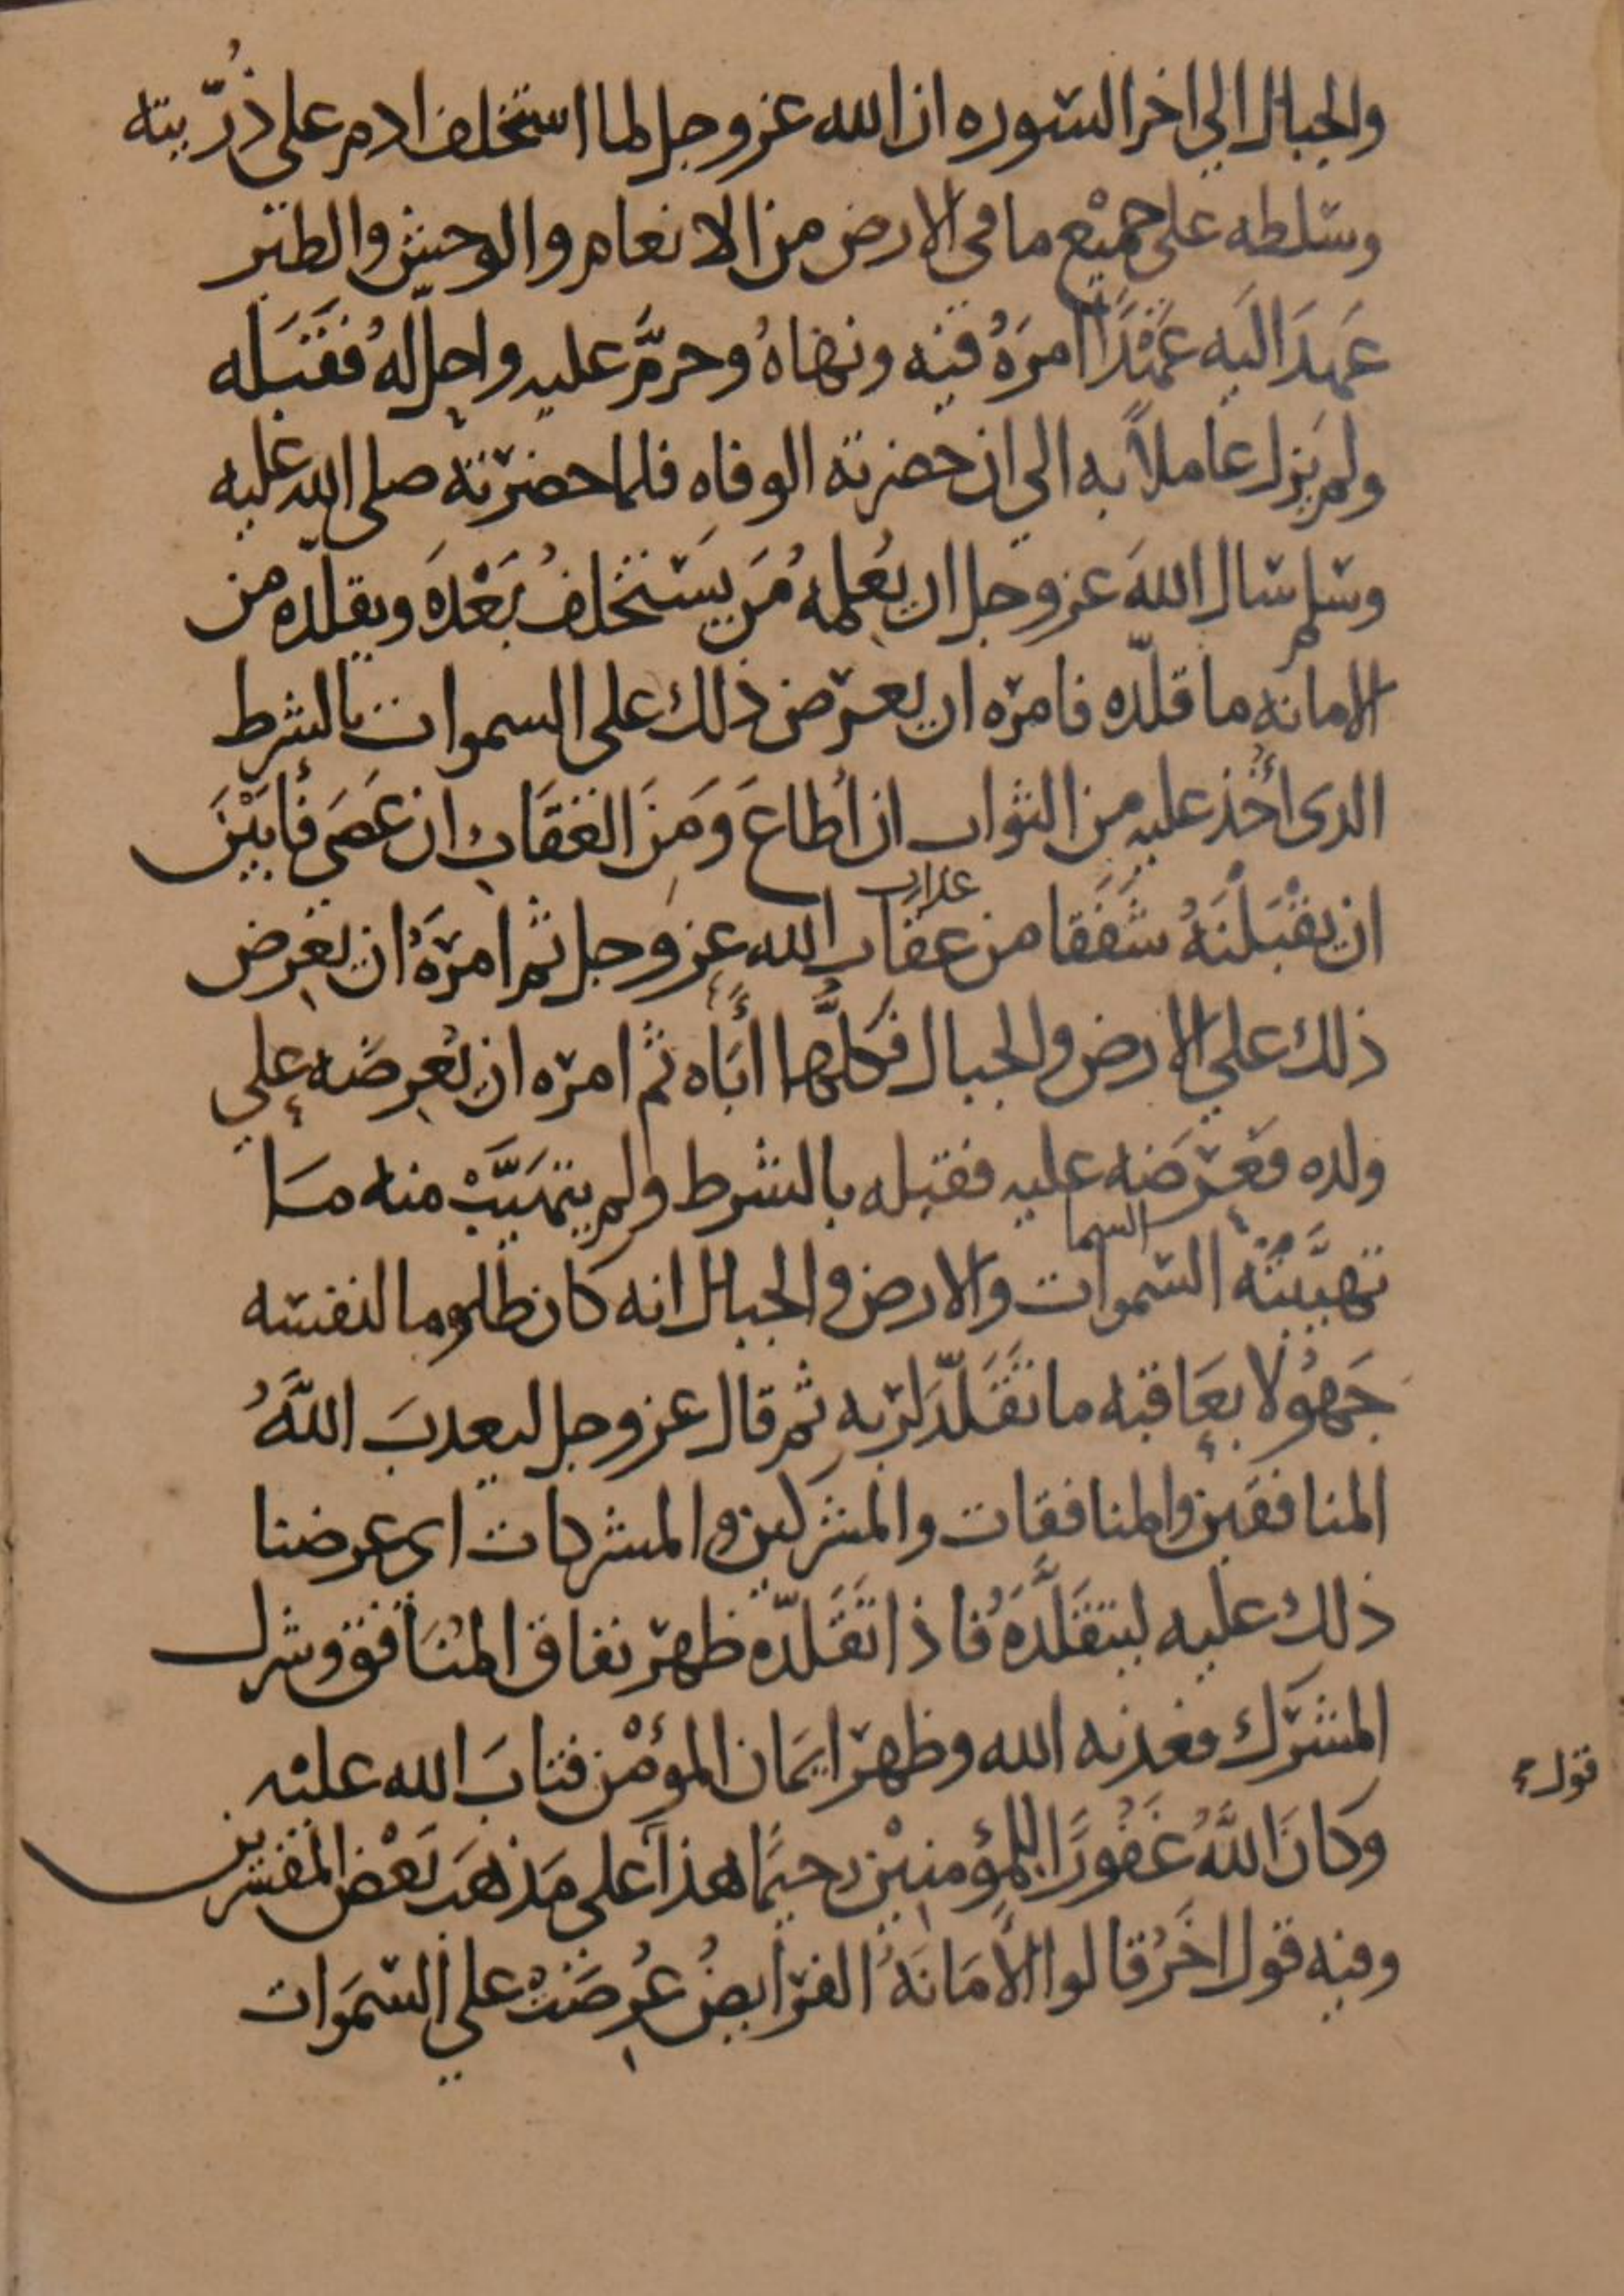 والجبال الي اخر السوره ان الله عز وجل لما استخلف ادم على ذُرّيته
وسلطه على جميْع ما في الارض من الانعام والوحش والطير
عَهِدَ اليَه عَهْدًا امرَهُ فيه ونهاهُ وحرمَّ عليه واحلّ لهُ فقَبَله
ولم يزل عاملاً به الي ان حضرته الوفاه فلما حضرته صلى الله عليه
وسلم سال اللهَ عز وجل ان يُعلمهُ مَن يستخلفُ بَعْدَه ويقلّده من
الامانه ما قلّده فامره ان يعرض ذلك على السموات بالشرط
الدى اُخذ عليه من الثواب ان اُطاعَ وَمِنَ العقَابِ ان عَصَى فأبَيْنَ
ان يقْبَلْنَهُ شَفَقا من عقاب الله عز وجل ثم امرَهُ ان يعرِض
عداب
ذلك علي الارض والجبال فكلَّها أبَاه ثم امره ان يعرِضه علي
ولده فعَرضَه عليه فقبله بالشرط ولم يتهَيَّبْ منه ما
تهيَّبتْهُ السموات والارض والجبال انه كان ظلوما لنفسه
السما
جَهُولا بعَاقبه ما تقَلّدَ لربه ثم قال عز وجل ليعدبَ اللَّهُ
المنافقين والمنافقات والمشركين والمشركات اى عرضنا
ذلك عليه ليتقَلَّدَهُ فاذا تقَلّده ظهر نفاق المنَافق وشرك
المشرك فعذبه الله وظهر ايمَان المؤمْن فتابَ الله عليْه
قول
وَكانَ اللَّهُ غَفُورًا للمؤمنيْن رحيمًا هذا على مَذهَب بَعْض المفسرين
وفيه قول اخَرُ قالوا الأمَانَهُ الفرايضُ عُرِضَتْ علي السّمَوات